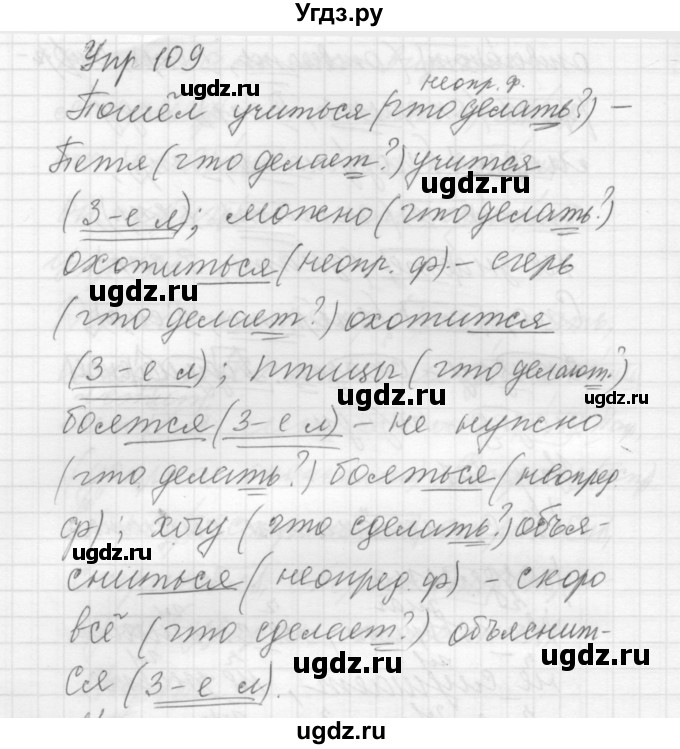 Угдз.ру
Упр 109
неопр. ф.
Пошёл учиться (что делать?) –
Петя (что делает?) учится
(3-е л); можно (что делать?)
охотиться (неопр. ф) – егерь
(что делает?) охотится
(3-е л); птицы (что делают?)
боятся (3-е л) – не нужно
(что делать?) бояться (неопред
ф); хочу (что сделать?) объя-
сниться (неопред. ф) – скоро
всё (что сделает?) объяснит-
ся (3-е л).
ugdz.ru
ugdz.ru
ugdz.ru
ugdz.ru
ugdz.ru
ugdz.ru
ugdz.ru
ugdz.ru
ugdz.ru
ugdz.ru
ugdz.ru
ugdz.ru
ugdz.ru
ugdz.ru